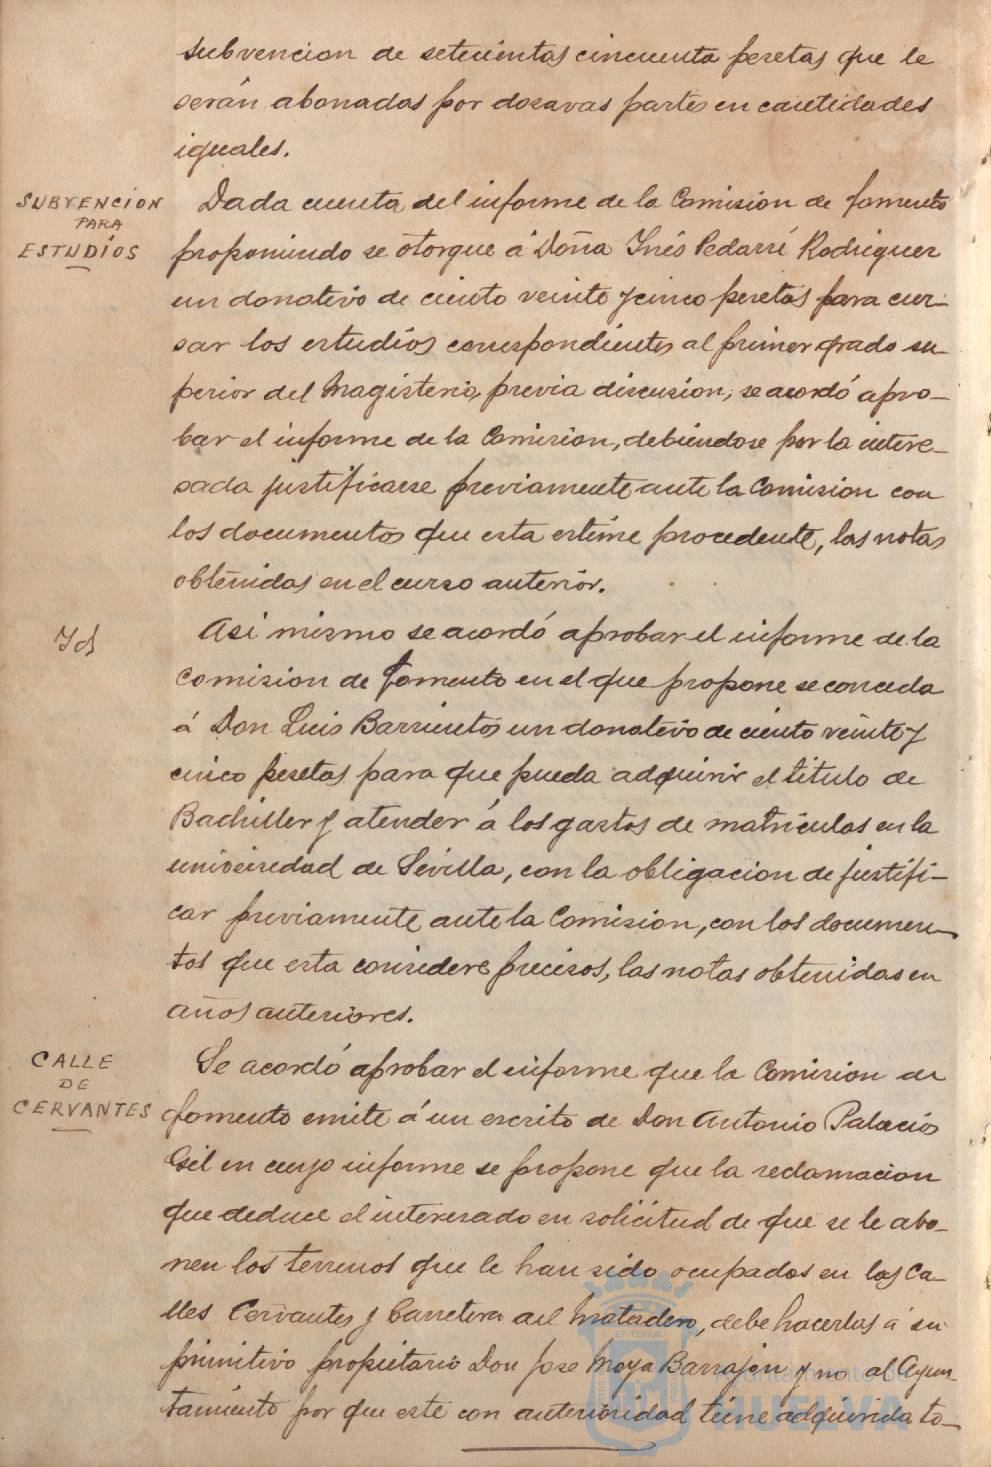 subvencion de setecientas cincuenta pesetas que le
serán abonadas por dozavas partes en cantidades
iguales.
SUBVENCION
PARA
ESTUDÍOS
Dada cuenta del informe de la Comision de fomento
proponiendo se otorgue á Doña Inés Pedarré Rodriguez
un donativo de ciento veinte y cinco pesetas para cur-
sar los estudios correspondientes al primer grado su-
perior del Magisterio, previa discusion, se acordó apro-
bar el informe de la Comision, debiendose por la intere-
sada justificarse previamente ante la Comision con
los documentos que esta estime procedente, las notas
obtenidas en el curso anterior.
Id
Asi mismo se acordó aprobar el informe de la
Comision de fomento en el que propone se conceda
á Don Luis Barrientos un donativo de ciento veinte y
cinco pesetas para que pueda adquirir el titulo de
Bachiller y atender á los gastos de matriculas en la
universidad de Sevilla, con la obligacion de justifi-
car previamente ante la Comision, con los documen-
tos que esta considere precisos, las notas obtenidas en
años anteriores.
CALLE
DE
CERVANTES
Se acordó aprobar el informe que la Comision de
fomento emite á un escrito de Don Antonio Palacios
Gil en cuyo informe se propone que la reclamacion
que deduce el interesado en solicitud de que se le abo-
nen los terrenos que le han sido ocupados en las Ca-
lles Cervantes y Carretera del Matadero, debe hacerlas á su
primitivo propietario Don Jose Moya Barrajon y no al Ayun-
tamiento por que este con anterioridad tiene adquirida to-
Ayuntamiento de
HUELVA